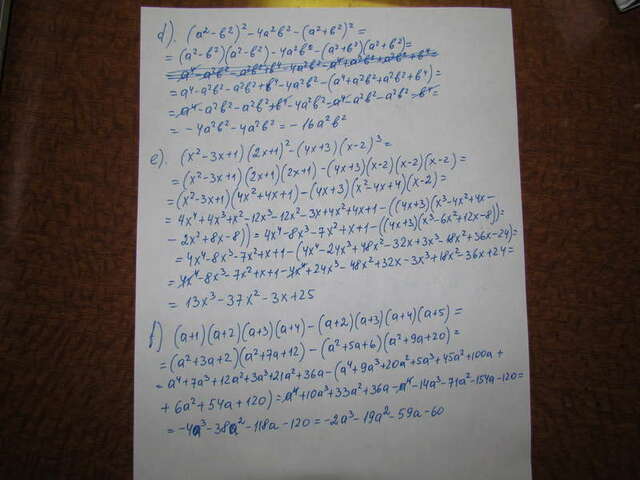 d). (a²-b²)²-4a²b²-(a²+b²)²=
=(a²-b²)(a²-b²)-4a²b²-(a²+b²)(a²+b²)=
=a⁴-a²b²-a²b²+b⁴-4a²b²-a⁴+a²b²+a²b²+b⁴
=a⁴-a²b²-a²b²+b⁴-4a²b²-(a⁴+a²b²+a²b²+b⁴)=
=a⁴-a²b²-a²b²+b⁴-4a²b²-a⁴-a²b²-a²b²-b⁴=
=-4a²b²-4a²b²=-16a²b²
e). (x²-3x+1)(2x+1)²-(4x+3)(x-2)³=
=(x²-3x+1)(2x+1)(2x+1)-(4x+3)(x-2)(x-2)(x-2)=
=(x²-3x+1)(4x²+4x+1)-(4x+3)(x²-4x+4)(x-2)=
=4x⁴+4x³+x²-12x³-12x²-3x+4x²+4x+1-((4x+3)(x³-4x²+4x-
-2x²+8x-8))=4x⁴-8x³-7x²+x+1-((4x+3)(x³-6x²+12x-8))=
=4x⁴-8x³-7x²+x+1-(4x⁴-24x³+48x²-32x+3x³-18x²+36x-24)=
=4x⁴-8x³-7x²+x+1-4x⁴+24x³-48x²+32x-3x³+18x²-36x+24=
=13x³-37x²-3x+25
f) (a+1)(a+2)(a+3)(a+4)-(a+2)(a+3)(a+4)(a+5)=
=(a²+3a+2)(a²+7a+12)-(a²+5a+6)(a²+9a+20)=
=a⁴+7a³+12a²+3a³+21a²+36a-(a⁴+9a³+20a²+5a³+45a²+100a+
+6a²+54a+120)=a⁴+10a³+33a²+36a-a⁴-14a³-71a²-154a-120=
=-4a³-38a²-118a-120=-2a³-19a²-59a-60